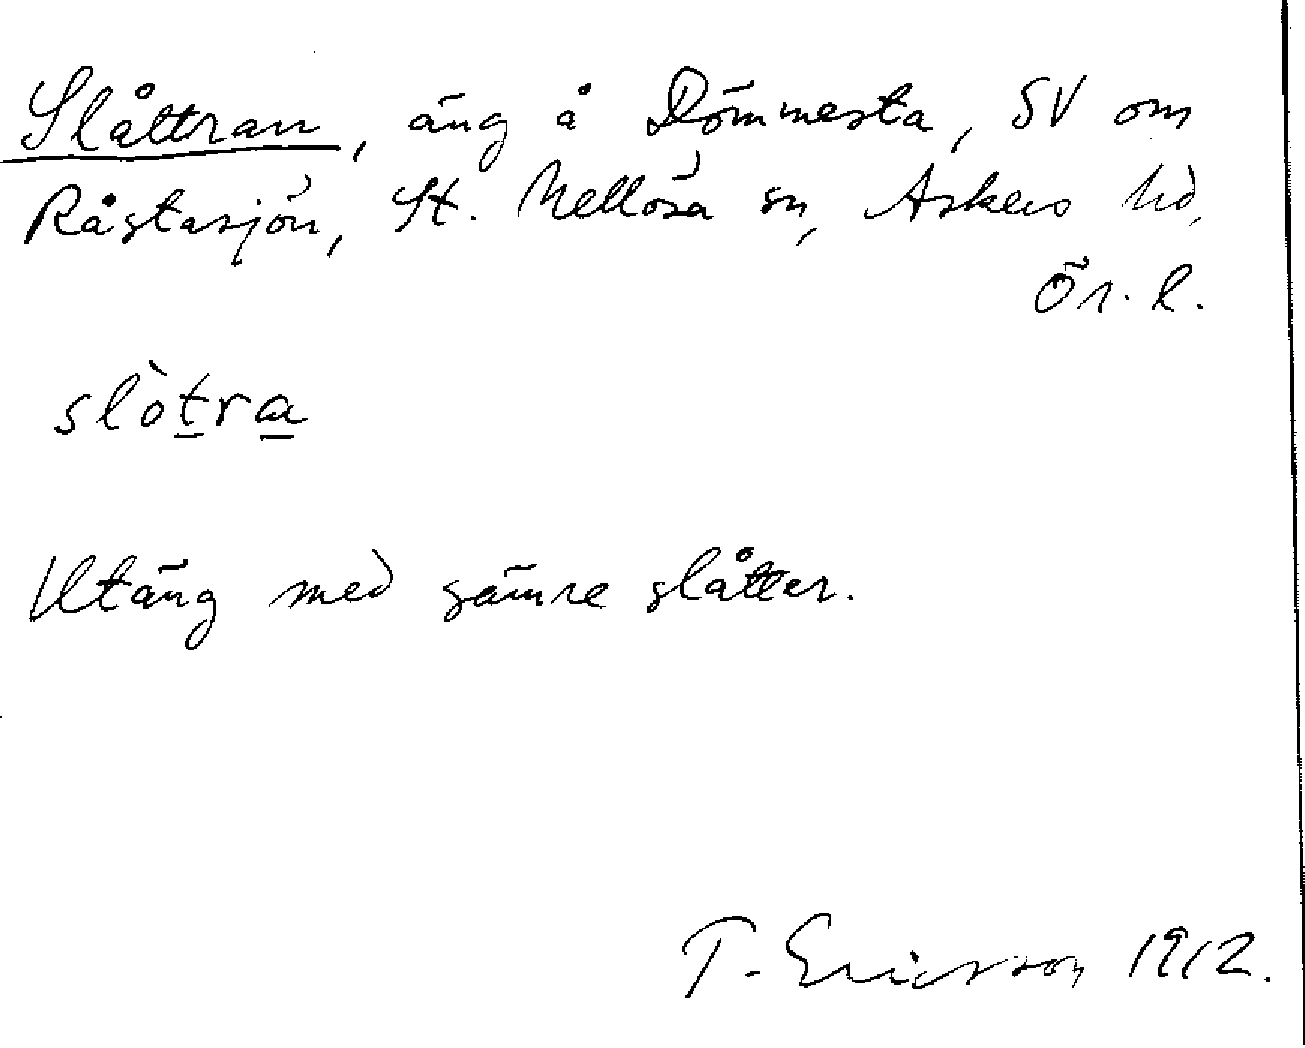 Slåttran, äng å Dömmesta, SV om
Råstasjön, St. Mellösa sn, Askers hd,
Ör. l.
slòtra
Utäng med sämre slåtter.
T. Ericsson 1912.